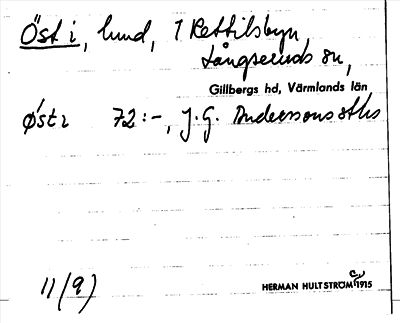 Öst i, lund, 1 Kettilsbyn,
Långseruds sn,
Gillbergs hd, Värmlands län
ø̍st i 72:-, J.G. Anderssons sths
11/(9) HERMAN HULTSTRÖM 1915